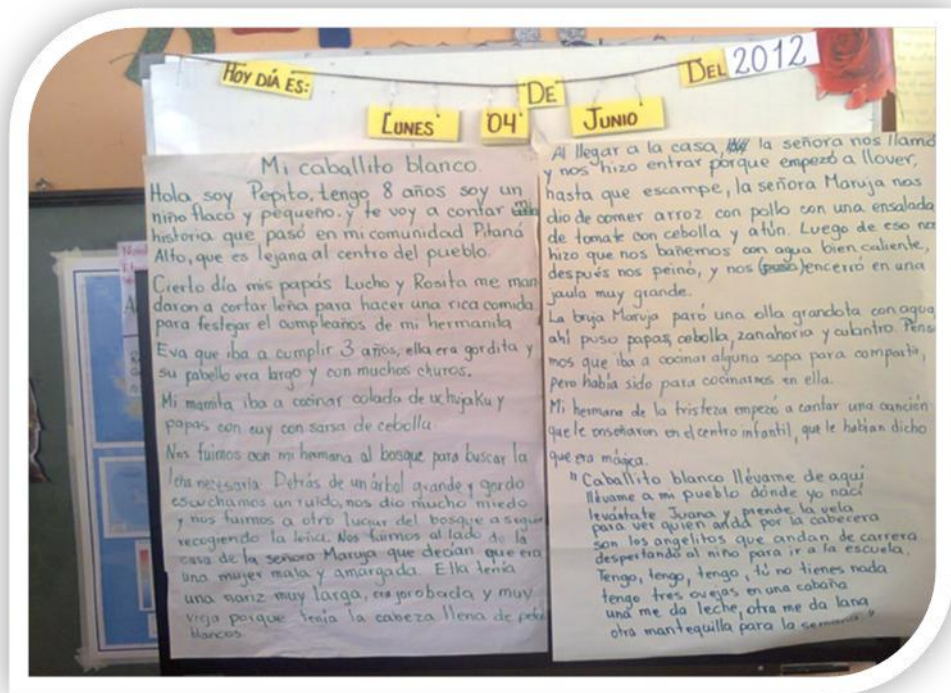 HOY DÍA ES:
LUNES 04 DE JUNIO DEL 2012
Mi caballito blanco
Hola soy Pepito, tengo 8 años soy un
niño flaco y pequeño. y te voy a contar mi
historia que pasó en mi comunidad Pitaná
Alto, que es lejana al centro del pueblo.
Cierto día mis papás Lucho y Rosita me man
daron a cortar leña para hacer una rica comida
para festejar el cumpleaños de mi hermanita
Eva que iba a cumplir 3 años, ella era gordita y
su pabello era largo y con muchos churos.
Mi mamita iba a cocinar colada de uchujaku y
papas con cuy con sarsa de cebolla.
Nos fuimos con mi hermana al bosque para buscar la
leña necesaria. Detrás de un árbol grande y gordo
escuchamos un ruido, nos dio mucho miedo
y nos fuimos a otro lugar del bosque a seguir
recogiendo la leña. Nos fuimos al lado de la
casa de la señora Maruja que decían que era
una mujer mala y amargada. Ella tenía
una nariz muy larga, era jorobada y muy
vieja porque tenía la cabeza llena de pelos
blancos.
Al llegar a la casa, la señora nos llamó
y nos hizo entrar porque empezó a llover,
hasta que escampe, la señora Maruja nos
dio de comer arroz con pollo con una ensalada
de tomate con cebolla y atún. Luego de eso nos
hizo que nos bañemos con agua bien caliente,
después nos peinó, y nos (puso) encerró en una
jaula muy grande.
La bruja Maruja paró una olla grandota con agua,
ahí puso papas, cebolla, zanahoria y culantro. Pensa
mos que iba a cocinar alguna sopa para compartir,
pero había sido para cocinarnos en ella.
Mi hermana de la tristeza empezó a cantar una canción
que le enseñaron en el centro infantil, que le habían dicho
que era mágica.
"Caballito blanco llévame de aquí
llévame a mi pueblo dónde yo nací
levántate Juana y prende la vela
para ver quien anda por la cabecera
son los angelitos que andan de carrera
despertando al niño para ir a la escuela.
Tengo, tengo, tengo, tú no tienes nada
tengo tres ovejas en una cabaña
una me da leche, otra me da lana
otra mantequilla para la semana."